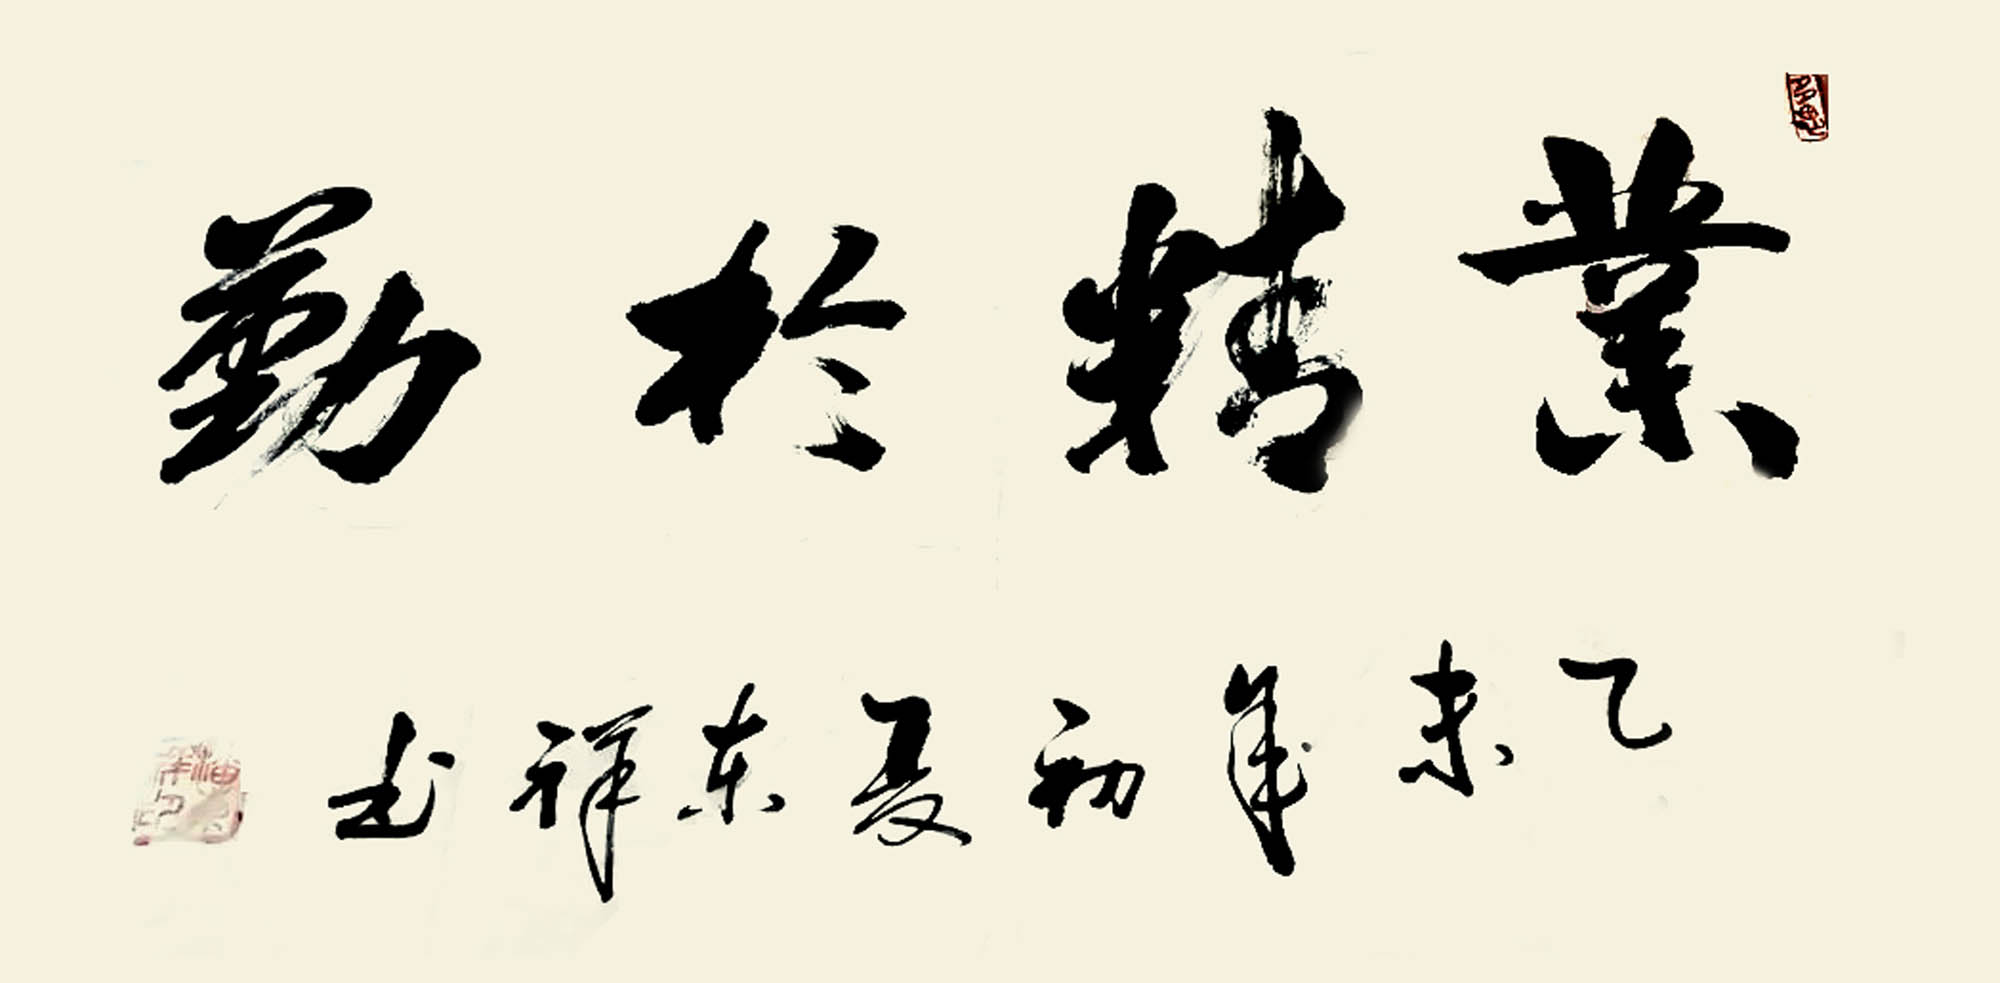 業精於勤
乙未年初夏东祥书